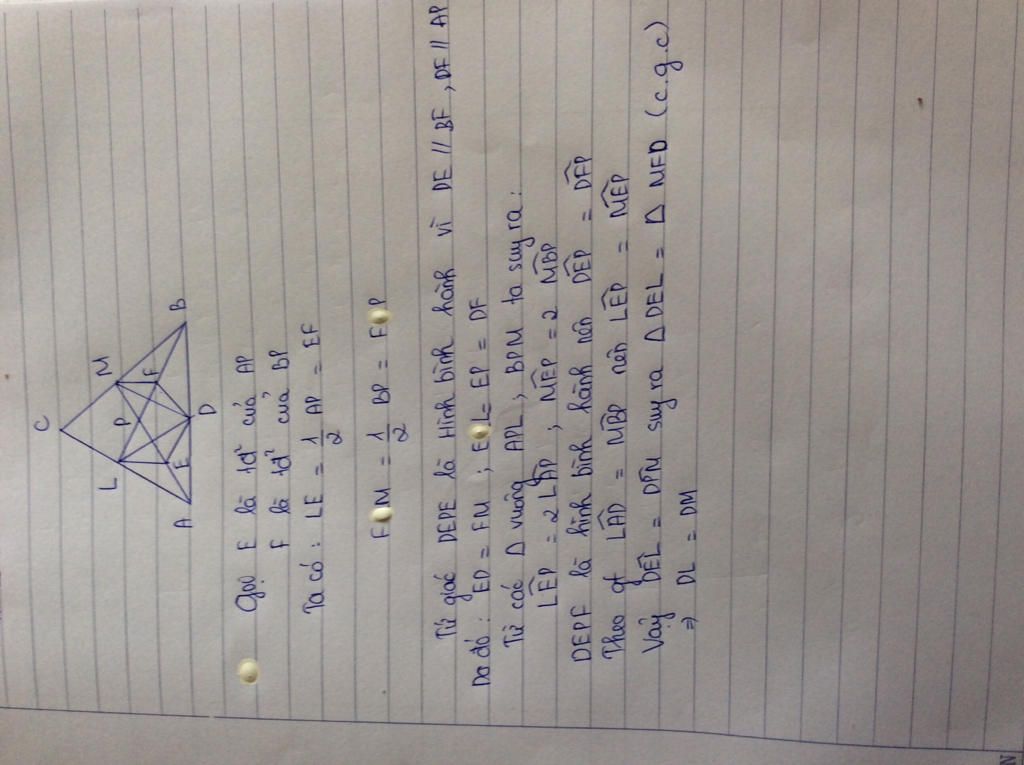 C
L
M
P
E
F
A
D
B
Gọi E là tđ² của AP
F là tđ² của BP
Ta có : LE = 1/2 AP = EF
FM = 1/2 BP = FP
Tứ giác DEPE là Hình bình hành vì DE // BF , DF // AP
Do đó : ED = FM ; EL = EP = DF
Từ các Δ vuông APL , BPM ta suy ra :
LÊP = 2 LÂP ; MÊP = 2 MBP
DEPF là hình bình hành nên DÊP = DÊP
Theo gt LÂD = MBP nên LÊP = MÊP
Vậy DÊL = DFM suy ra Δ DEL = Δ MFD (c.g.c)
⇒ DL = DM
N